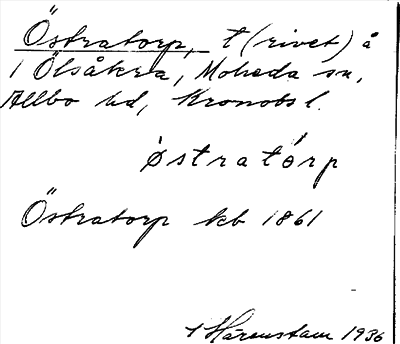 Östratorp, t (rivet) å
1 Ölsåkra, Moheda sn,
Allbo hd, Kronobs l.
östratorp
Östratorp kb 1861
Härenstam 1936